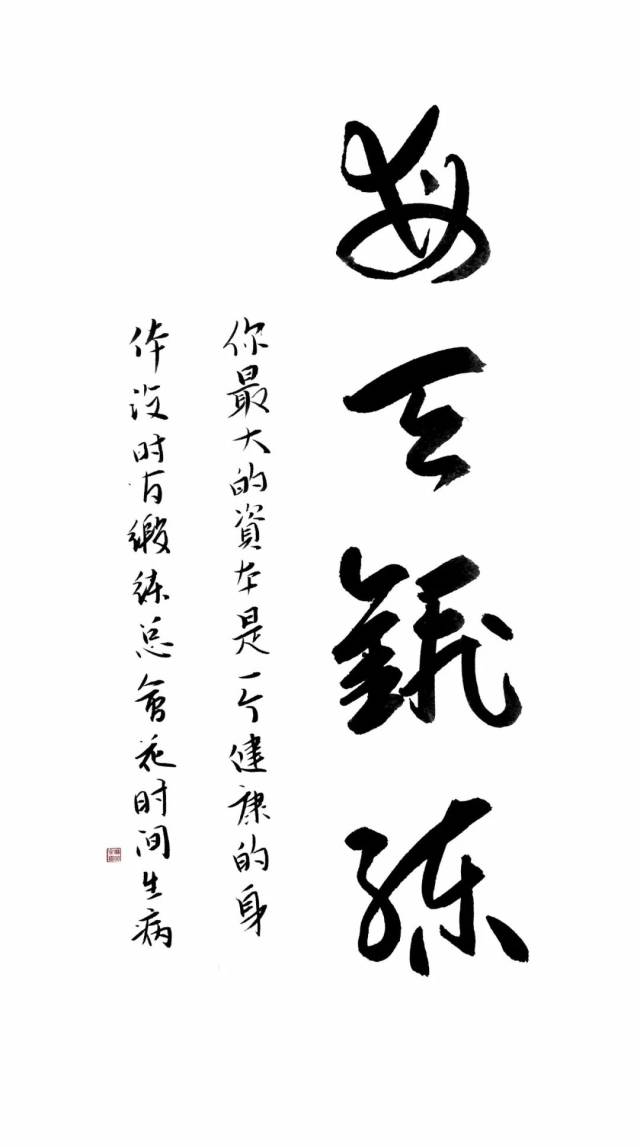 每天鍛练
你最大的資本是一个健康的身
体没时间缎练总會花时间生病